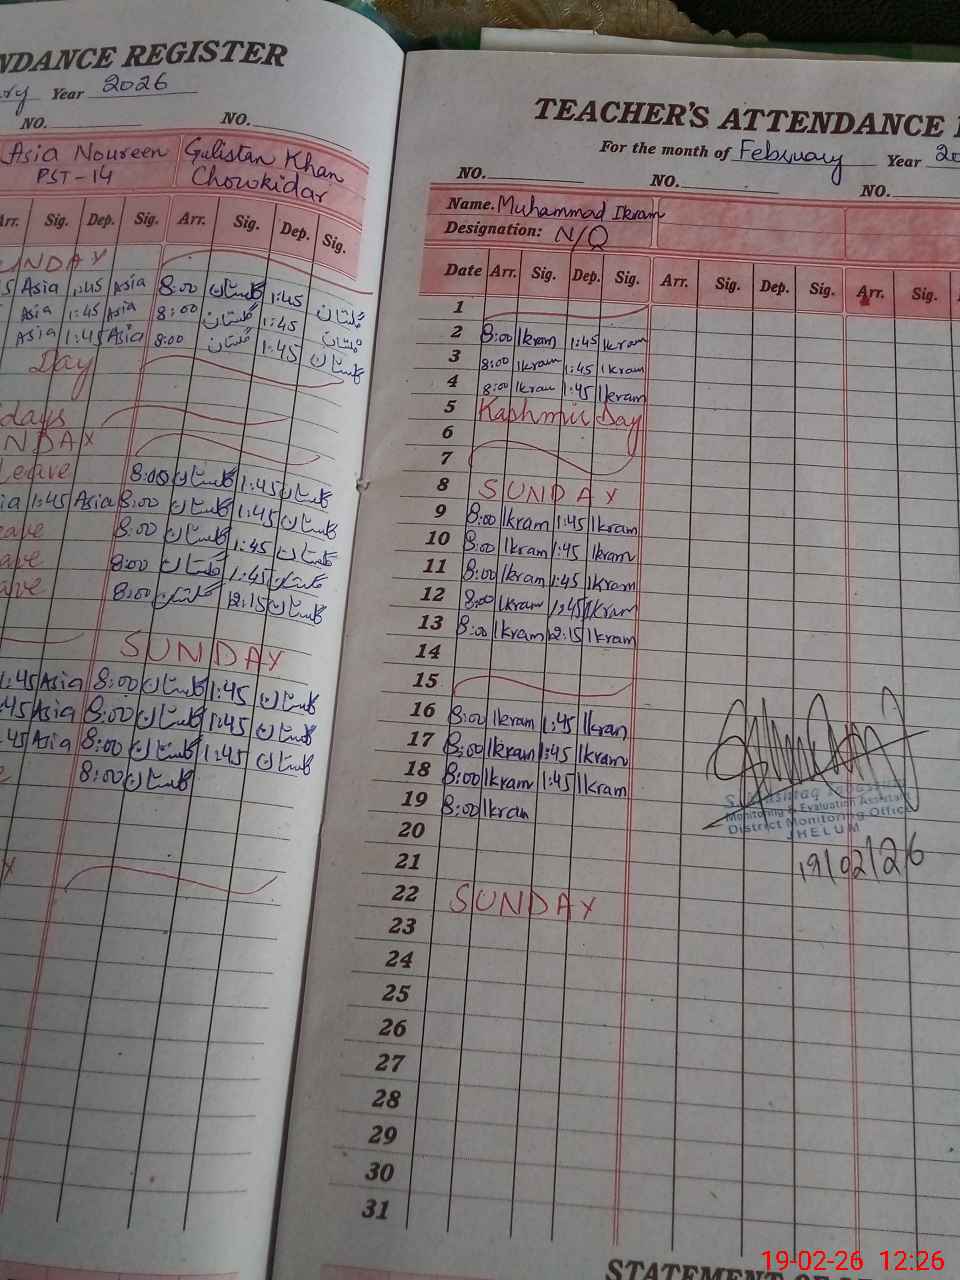 NDANCE REGISTER
ry Year 2026
NO. NO.
Asia Noureen Gulistan Khan
PST-14 Chowkidar
Arr. Sig. Dep. Sig. Arr. Sig. Dep. Sig.
UNDAY
5 Asia 1:45 Asia 8:00 گلستان 1:45 گلستان
Asia 1:45 Asia 8:00 گلستان 1:45 گلستان
Asia 1:45 Asia 8:00 گلستان 1:45 گلستان
Day
days
NDAY
Leave 8:00 گلستان 1:45 گلستان
ia 1:45 Asia 8:00 گلستان 1:45 گلستان
eave 8:00 گلستان 1:45 گلستان
ave 8:00 گلستان 1:45 گلستان
ave 8:00 گلستان 12:15 گلستان
SUNDAY
1:45 Asia 8:00 گلستان 1:45 گلستان
:45 Asia 8:00 گلستان 1:45 گلستان
:45 Asia 8:00 گلستان 1:45 گلستان
e 8:00 گلستان
Y
TEACHER'S ATTENDANCE
For the month of February Year 20
NO. NO. NO.
Name. Muhammad Ikram
Designation: N/Q
Date Arr. Sig. Dep. Sig. Arr. Sig. Dep. Sig. Arr. Sig.
1
2 8:00 Ikram 1:45 Ikram
3 8:00 Ikram 1:45 Ikram
4 8:00 Ikram 1:45 Ikram
5 Kashmir Day
6
7
8 SUNDAY
9 8:00 Ikram 1:45 Ikram
10 8:00 Ikram 1:45 Ikram
11 8:00 Ikram 1:45 Ikram
12 8:00 Ikram 1:45 Ikram
13 8:00 Ikram 12:15 Ikram
14
15
16 8:00 Ikram 1:45 Ikram
17 8:00 Ikram 1:45 Ikram
18 8:00 Ikram 1:45 Ikram
19 8:00 Ikram
20
21
22 SUNDAY
23
24
25
26
27
28
29
30
31
Monitoring & Evaluation Assistant
District Monitoring Office
JHELUM
19/02/26
STATEMENT
19-02-26 12:26